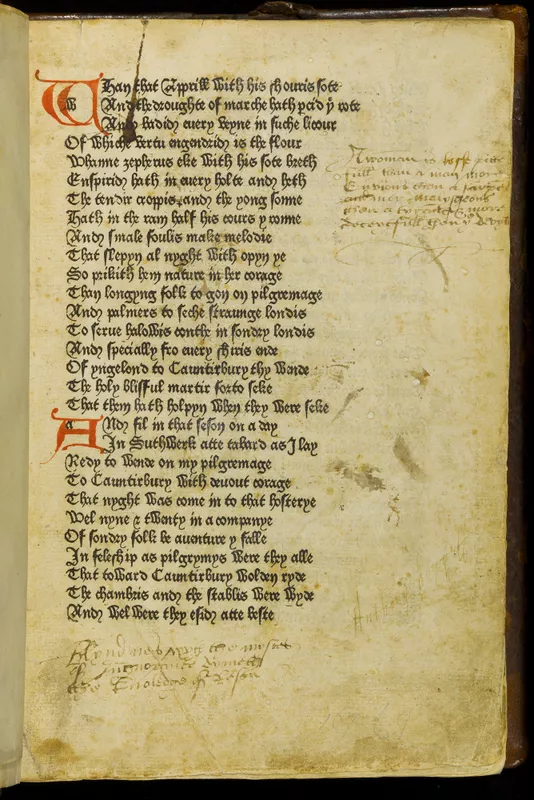 Whan that Apprill with his shouris sote
And the droughte of marche hath pcid þ rote
And badid euery veyne in suche licour
Of whiche vertu engendrid is the flour
Whanne zepherus eke with his sote breth
Enspirid hath in euery holte and heth
The tendir croppis and the yong sonne
Hath in the ram half his cours y ronne
And smale foulis make melodie
That slepyn al nyght with opyn ye
So prikith hem nature in her corage
Than longyng folk to gon on pilgremage
And palmers to seche straunge londis
To serue halowis couthe in sondry londis
And specially fro euery shiris ende
Of yngelond to Cauntirbury thy wende
The holy blisful martir forto seke
That them hath holpyn when they were seke
And fil in that seson on a day
In Suthwerk atte tabard as I lay
Redy to wende on my pilgremage
To Cauntirbury with deuout corage
That nyght was come in to that hosterye
Wel nyne & twenty in a companye
Of sondry folk be auenture y falle
In feleship as pilgrymys were they alle
That toward Cauntirbury wolden ryde
The chambris and the stablis were wyde
And wel were they esid atte beste
A woman is
full than a man more
Enuious than a
than a more
deceytfull than
the
of
the of